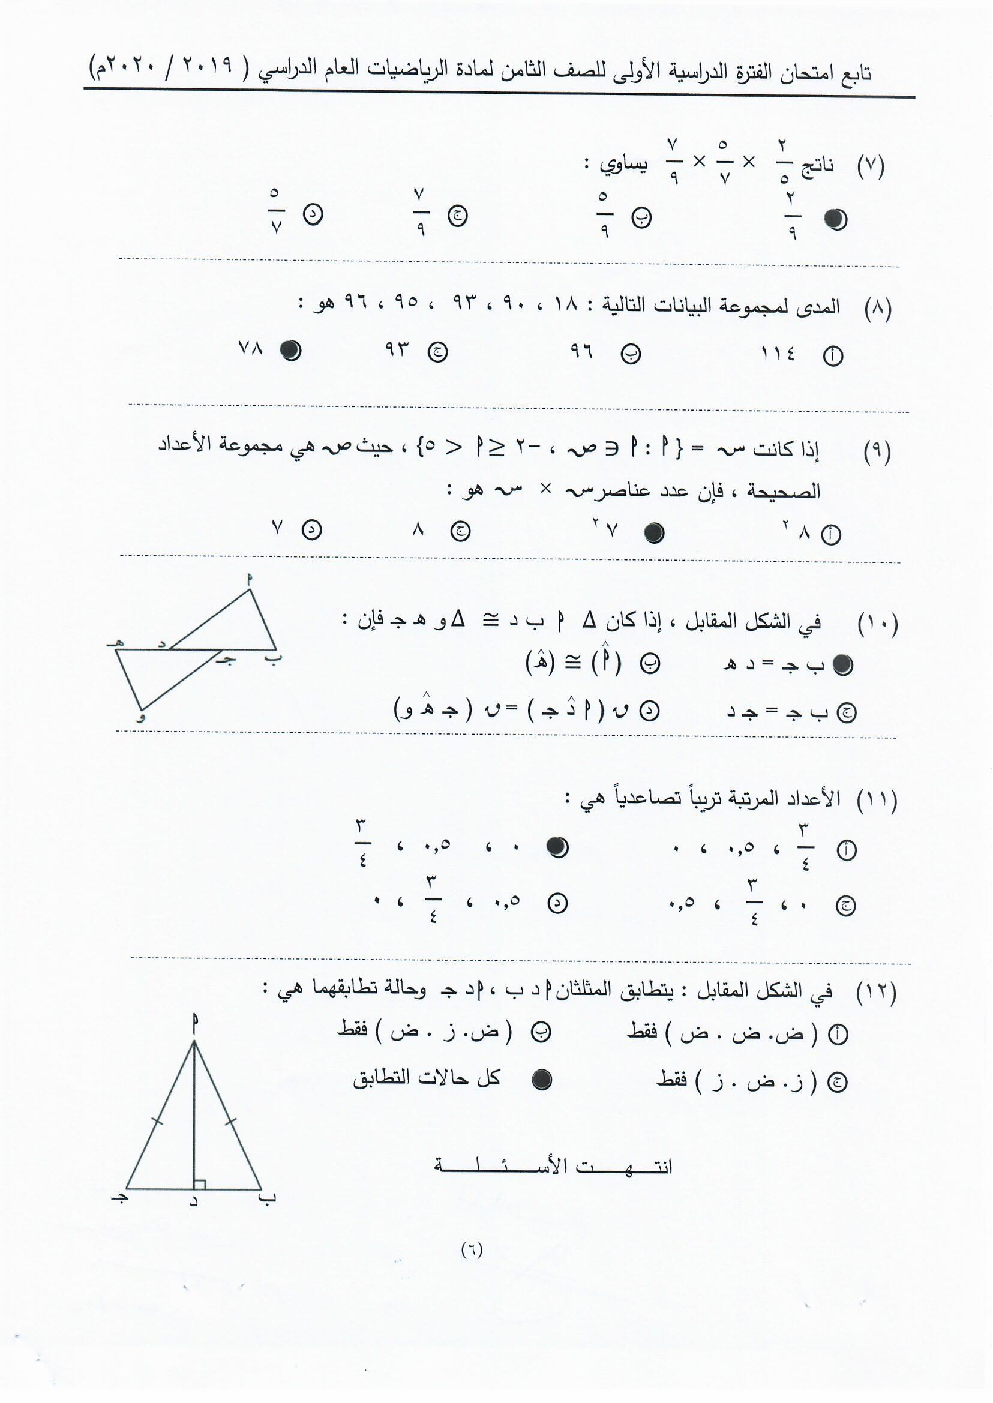 تابع امتحان الفترة الدراسية الأولى للصف الثامن لمادة الرياضيات العام الدراسي ( ٢٠١٩ / ٢٠٢٠م)
(٧) ناتج ٢/٥ × ٥/٧ × ٧/٩ يساوي :
٢/٩ ب ٥/٩ ج ٧/٩ د ٥/٧
(٨) المدى لمجموعة البيانات التالية : ١٨ ، ٩٠ ، ٩٣ ، ٩٥ ، ٩٦ هو :
أ ١١٤ ب ٩٦ ج ٩٣ ٧٨
(٩) إذا كانت س = {أ : أ ∋ ص ، -٢ ≤ أ < ٥} ، حيث ص هي مجموعة الأعداد
الصحيحة ، فإن عدد عناصر س × س هو :
أ ٨² ٧² ج ٨ د ٧
(١٠) في الشكل المقابل ، إذا كان Δ أ ب د ≅ Δ و هـ جـ فإن :
ب جـ = د هـ ب (أ̂) ≅ (هـ̂)
ج ب جـ = جـ د د ن ( أ د̂ جـ ) = ن ( جـ هـ̂ و)
أ
هـ د جـ ب
و
(١١) الأعداد المرتبة تريباً تصاعدياً هي :
أ ٣/٤ ، ٠,٥ ، ٠ ٠ ، ٠,٥ ، ٣/٤
ج ٠ ، ٣/٤ ، ٠,٥ د ٠,٥ ، ٣/٤ ، ٠
(١٢) في الشكل المقابل : يتطابق المثلثان أ د ب ، أ د جـ وحالة تطابقهما هي :
أ ( ض. ض . ض ) فقط ب ( ض. ز . ض ) فقط
ج ( ز. ض . ز ) فقط كل حالات التطابق
أ
جـ د ب
انتهت الأسئلة
(٦)